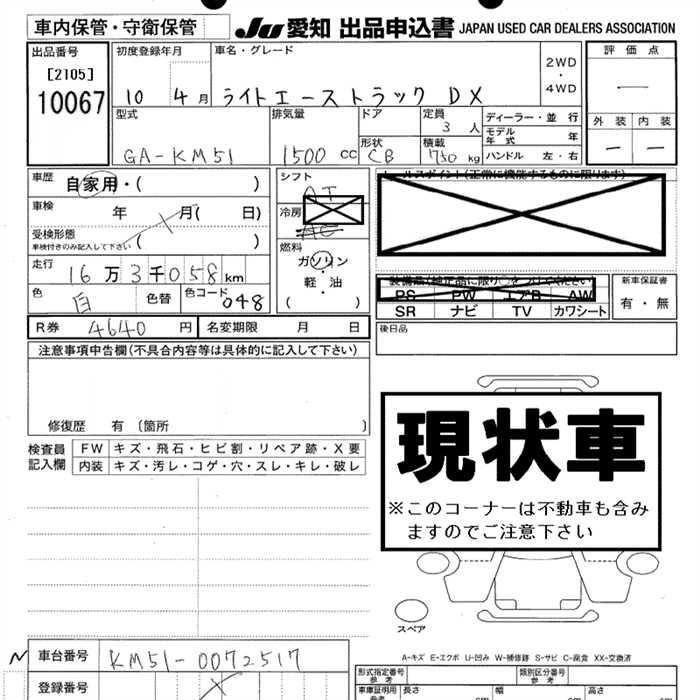 車内保管・守衛保管 JU愛知 出品申込書 JAPAN USED CAR DEALERS ASSOCIATION
出品番号 初度登録年月 車名・グレード 2WD ・ 4WD 評価点
[2105]
10067 10 4月 ライトエーストラック DX —
型式 排気量 ドア 定員 ディーラー・並行 外装 内装
3人 モデル年式 年
GA-KM51 1500cc 形状 CB 積載 750kg ハンドル 左・右 — —
車歴 自家用・( ) シフト AT セールスポイント(正常に機能するものに限ります)
車検 年 月( 日) 冷房 AC
受検形態
車検付きのみ記入して下さい ( ) 燃料
ガソリン・軽・油
( )
走行 16万3千058km 装備品(純正品に限り○をつけてください) 新車保証書
PS PW エアB AW 有・無
色 白 色替 色コード 048 SR ナビ TV カワシート
R券 4640円 名変期限 月 日 後日品
注意事項申告欄(不具合内容等は具体的に記入して下さい)
修復歴 有 〔箇所 〕
現状車
※このコーナーは不動車も含み
ますのでご注意下さい
検査員 FW キズ・飛石・ヒビ割・リペア跡・X要
記入欄 内装 キズ・汚レ・コゲ・穴・スレ・キレ・破レ
スペア
A-キズ E-エクボ U-凹み W-補修跡 S-サビ C-腐食 XX-交換済
N 車台番号 KM51-0072517
登録番号
形式指定番号 参考 類別区分番号 参考
車庫証明用 参考 長さ cm 幅 cm 高さ cm